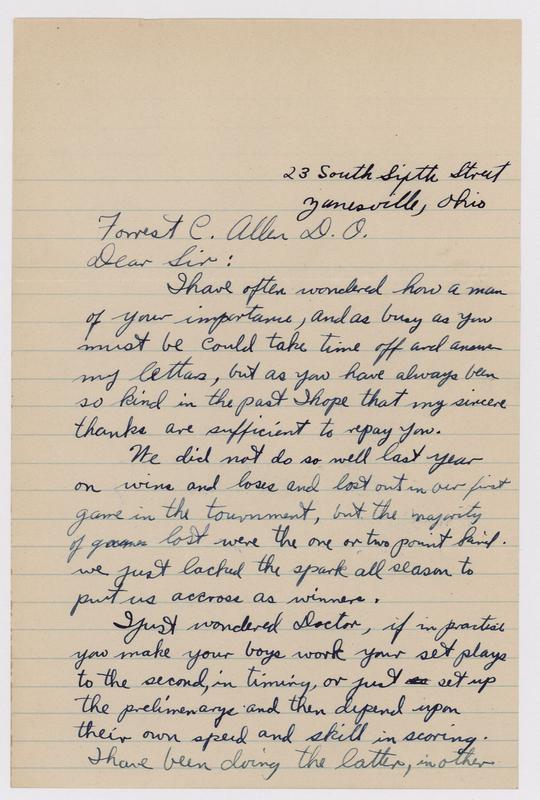 23 South Sixth Street
Zanesville, Ohio
Forrest C. Allen D. O.
Dear Sir:
I have often wondered how a man
of your importance, and as busy as you
must be could take time off and answer
my letters, but as you have always been
so kind in the past I hope that my sincere
thanks are sufficient to repay you.
We did not do so well last year
on wins and loses and lost out in our first
game in the tournment, but the majority
of games lost were the one or two point kind.
we just lacked the spark all season to
put us accross as winners.
I just wondered Doctor, if in practice
you make your boys work your set plays
to the second, in timing, or just set up
the prelimenarys and then depend upon
their own speed and skill in scoring.
I have been doing the latter, in other